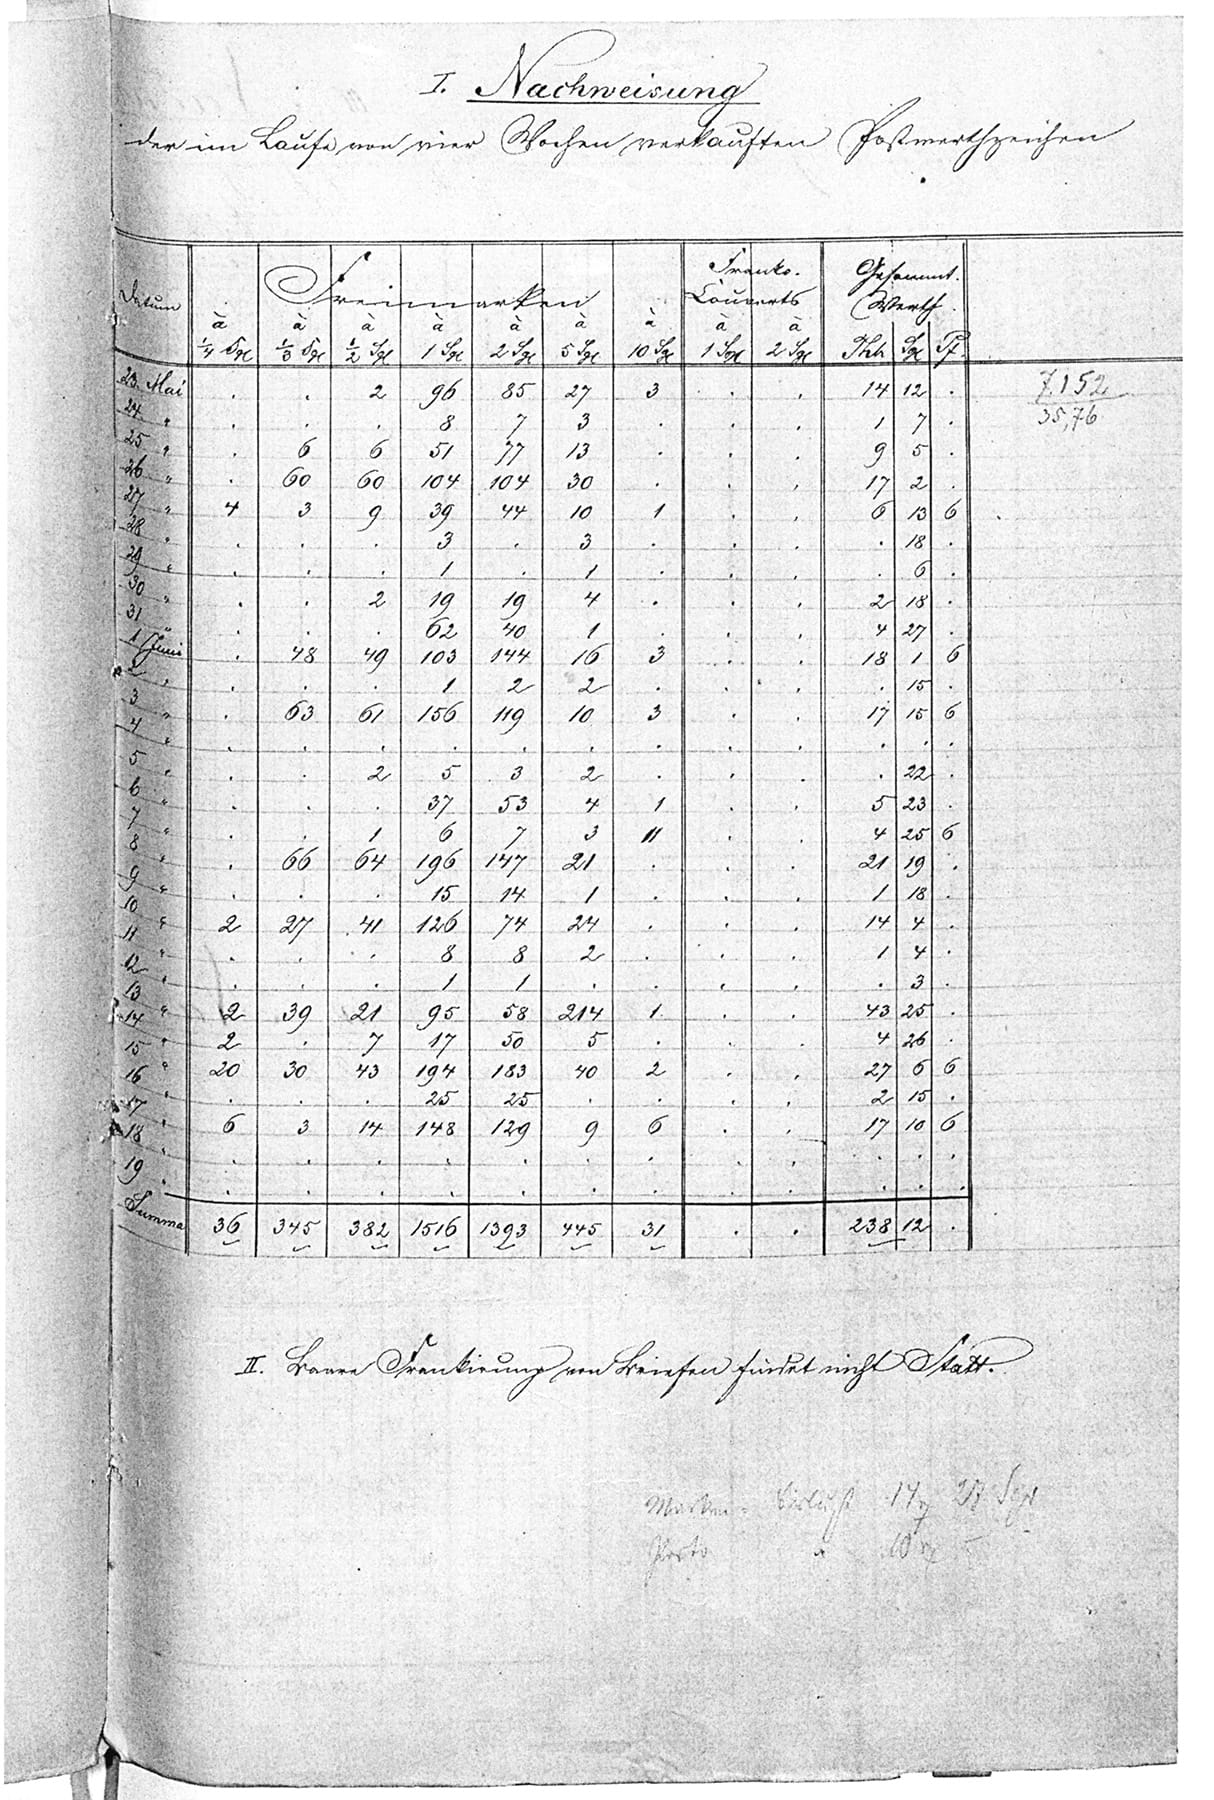 I. Nachweisung
der im Laufe von vier Wochen verkauften Postwerthzeichen
Datum Freimarken Franko- Couverts Gesammt- Werth
à ¼ Sgl à ⅓ Sgl à ½ Sgl à 1 Sgl à 2 Sgl à 5 Sgl à 10 Sgl à 1 Sgl à 2 Sgl Thlr Sgl Pf
23. Mai . . 2 96 85 27 3 . . 14 12 . 7.152
24 " . . . 8 7 3 . . . 1 7 . 35,76
25 " . 6 6 51 77 13 . . . 9 5 .
26 " . 60 60 104 104 30 . . . 17 2 .
27 " 4 3 9 39 44 10 1 . . 6 13 6
28 " . . . 3 . 3 . . . . 18 .
29 " . . . 1 . 1 . . . . 6 .
30 " . . 2 19 19 4 . . . 2 18 .
31 " . . . 62 40 1 . . . 4 27 .
1 Juni . 48 49 103 144 16 3 . . 18 1 6
2 " . . . 1 2 2 . . . . 15 .
3 " . 63 61 156 119 10 3 . . 17 15 6
4 " . . . . . . . . . . . .
5 " . . 2 5 3 2 . . . . 22 .
6 " . . . 37 53 4 1 . . 5 23 .
7 " . . 1 6 7 3 11 . . 4 25 6
8 " . 66 64 196 147 21 . . . 21 19 .
9 " . . . 15 14 1 . . . 1 18 .
10 " 2 27 41 126 74 24 . . . 14 4 .
11 " . . . 8 8 2 . . . 1 4 .
12 " . . . 1 1 . . . . . 3 .
13 " 2 39 21 95 58 214 1 . . 43 25 .
14 " 2 . 7 17 50 5 . . . 4 26 .
15 " 20 30 43 194 183 40 2 . . 27 6 6
16 " . . . 25 25 . . . . 2 15 .
17 " 6 3 14 148 129 9 6 . . 17 10 6
18 " . . . . . . . . . . . .
19 " . . . . . . . . . . . .
Summa 36 345 382 1516 1393 445 31 . . 238 12 .
II. Baare Frankirung von Briefen findet nicht Statt.
Marken- 17 27 Sgr
Porto " 10